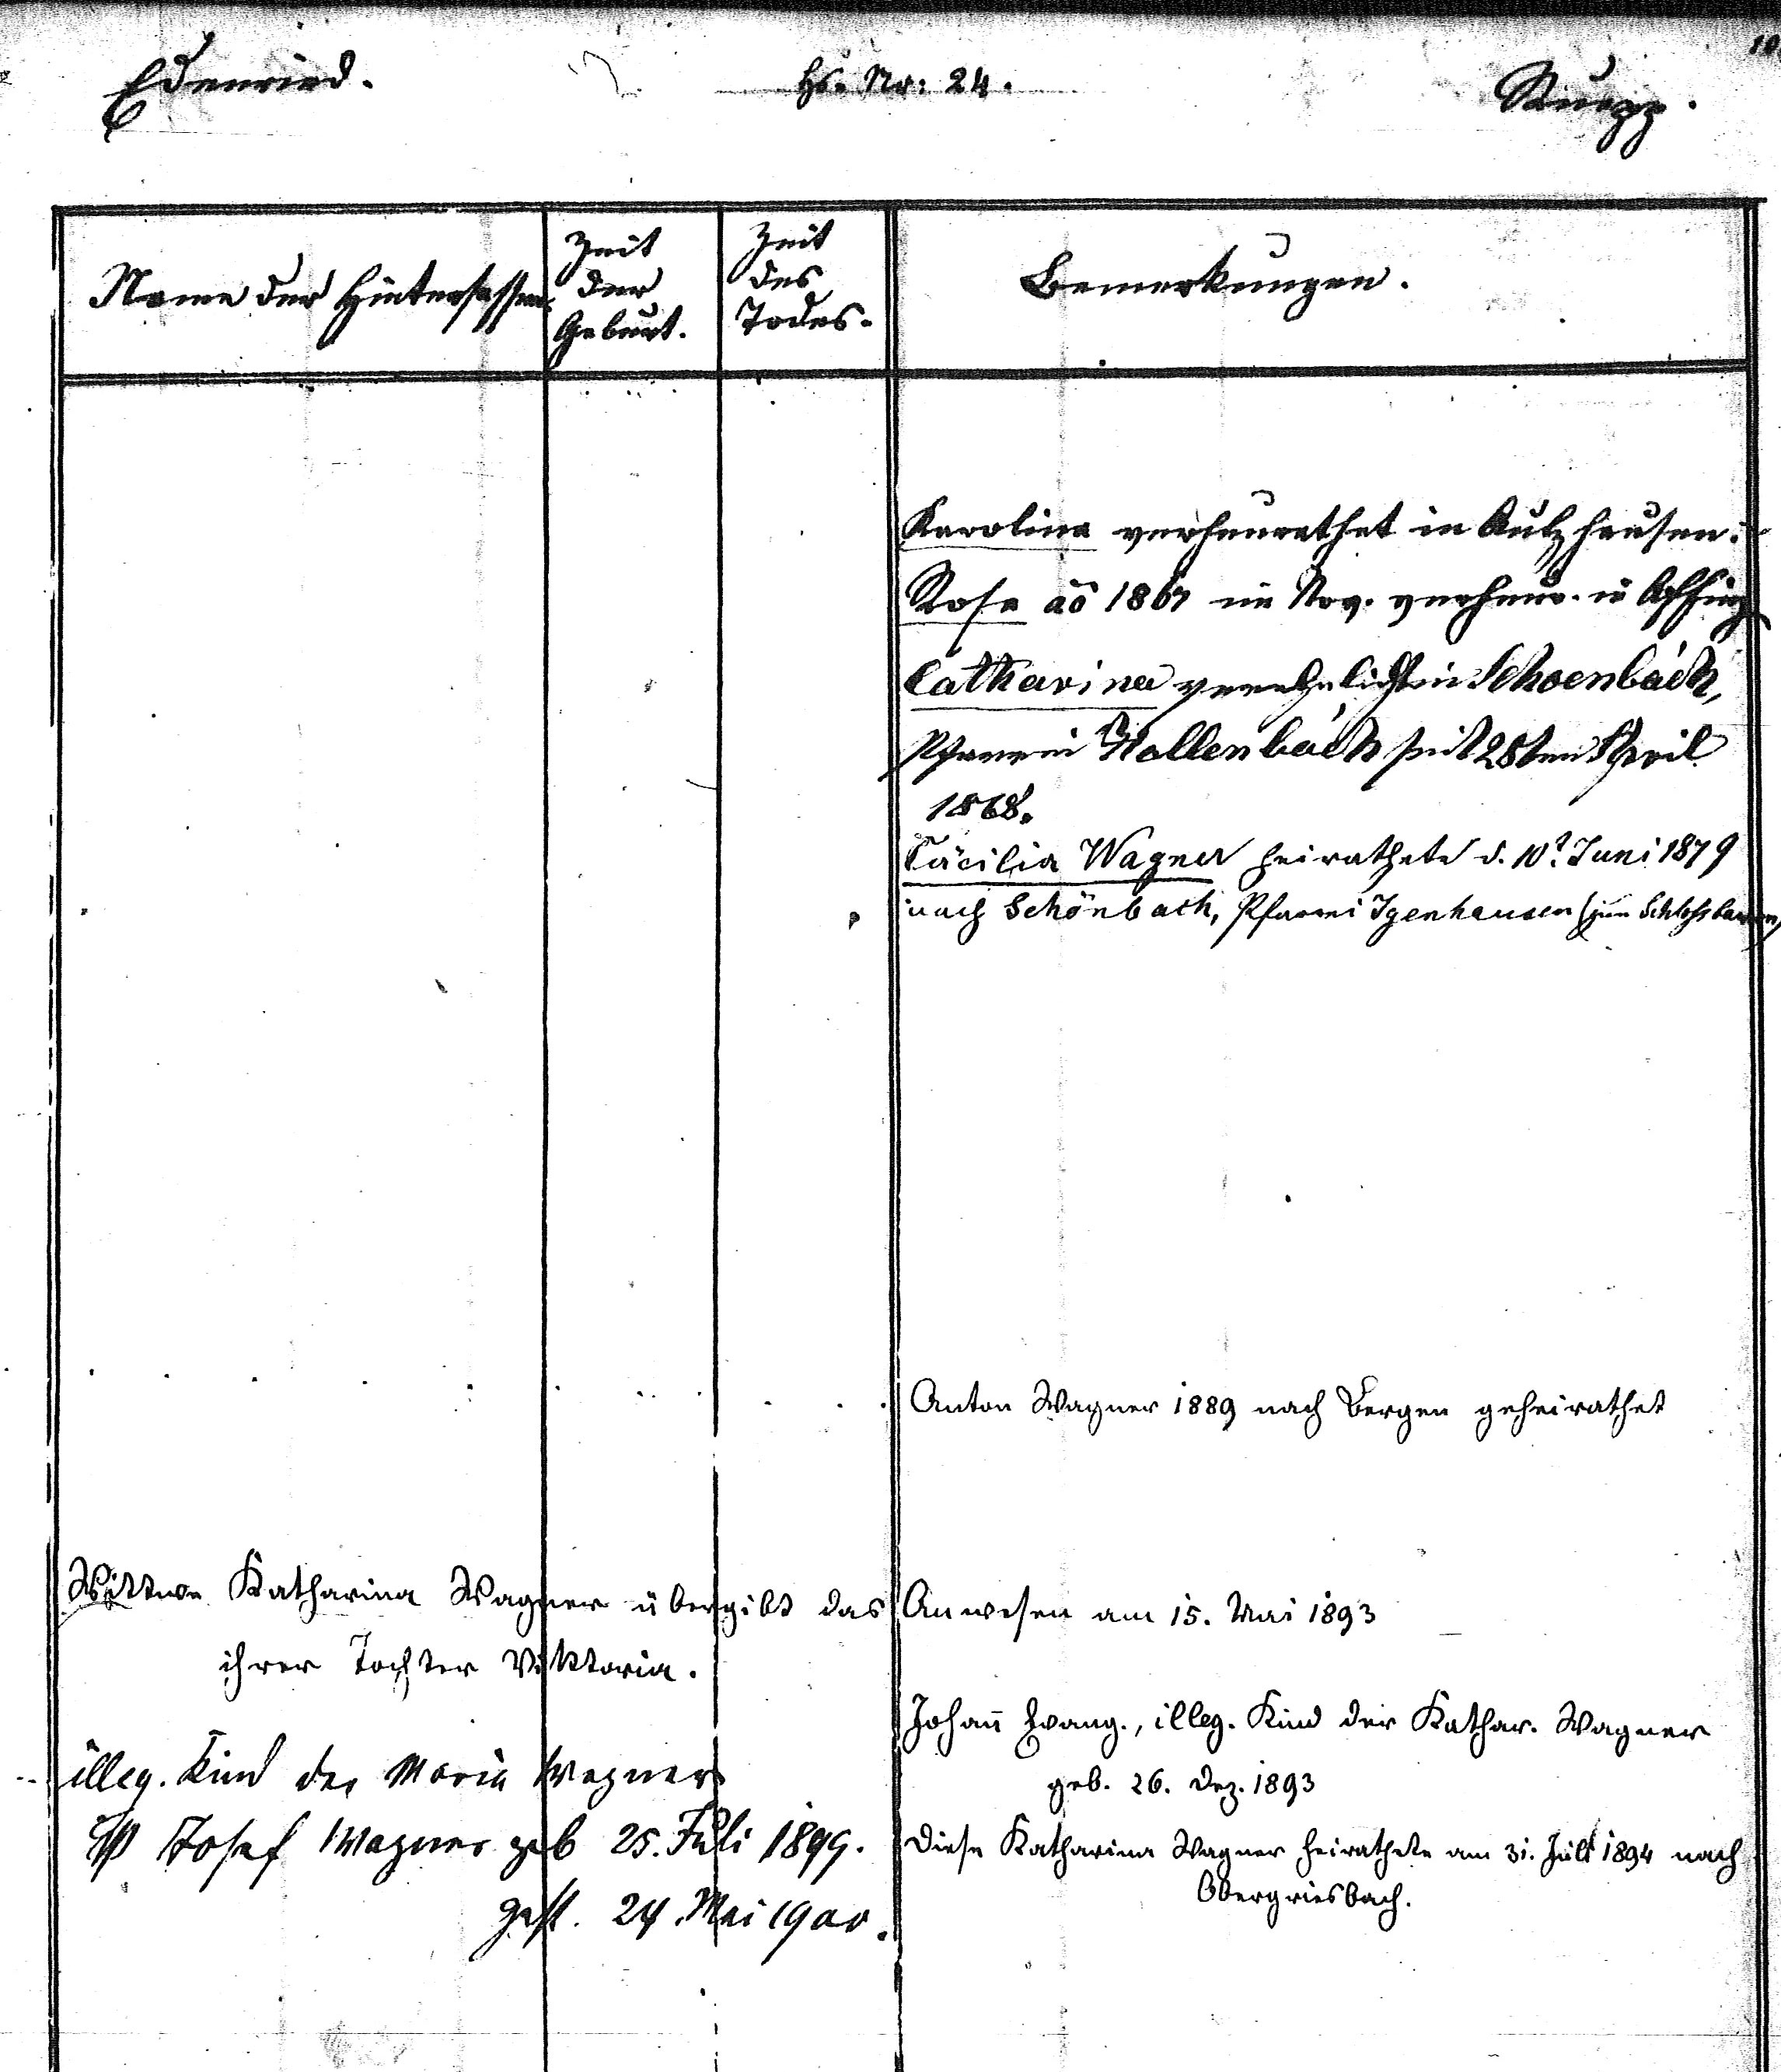 Edenried.
Hs. Nr: 24.
Name der Hintersassen.
Zeit
der
Geburt.
Zeit
des
Todes.
Bemerkungen.
Karolina verheurathet in Aulzhausen.
Rosa aō 1867 im Nov. verheur. in Affing
Catharina verehelicht in Schoenbäch,
Pfarrei Hollenbäch seit 28ten April
1868.
Cäcilia Wagner heirathete d. 10t Juni 1879
nach Schönbach, Pfarrei Igenhausen (zum Schlossbauern)
Anton Wagner 1889 nach Bergen geheirathet
Wittwe Katharina Wagner übergibt das Anwesen am 15. Mai 1893
ihrer Tochter Viktoria.
Johañ Evang., illeg. Kind der Kathar. Wagner
geb. 26. Dez. 1893
Diese Katharina Wagner heirathete am 31. Juli 1894 nach
Obergriesbach.
illeg. Kind der Maria Wagner
Josef Wagner geb 25. Juli 1899.
gest. 24. Mai 1900.